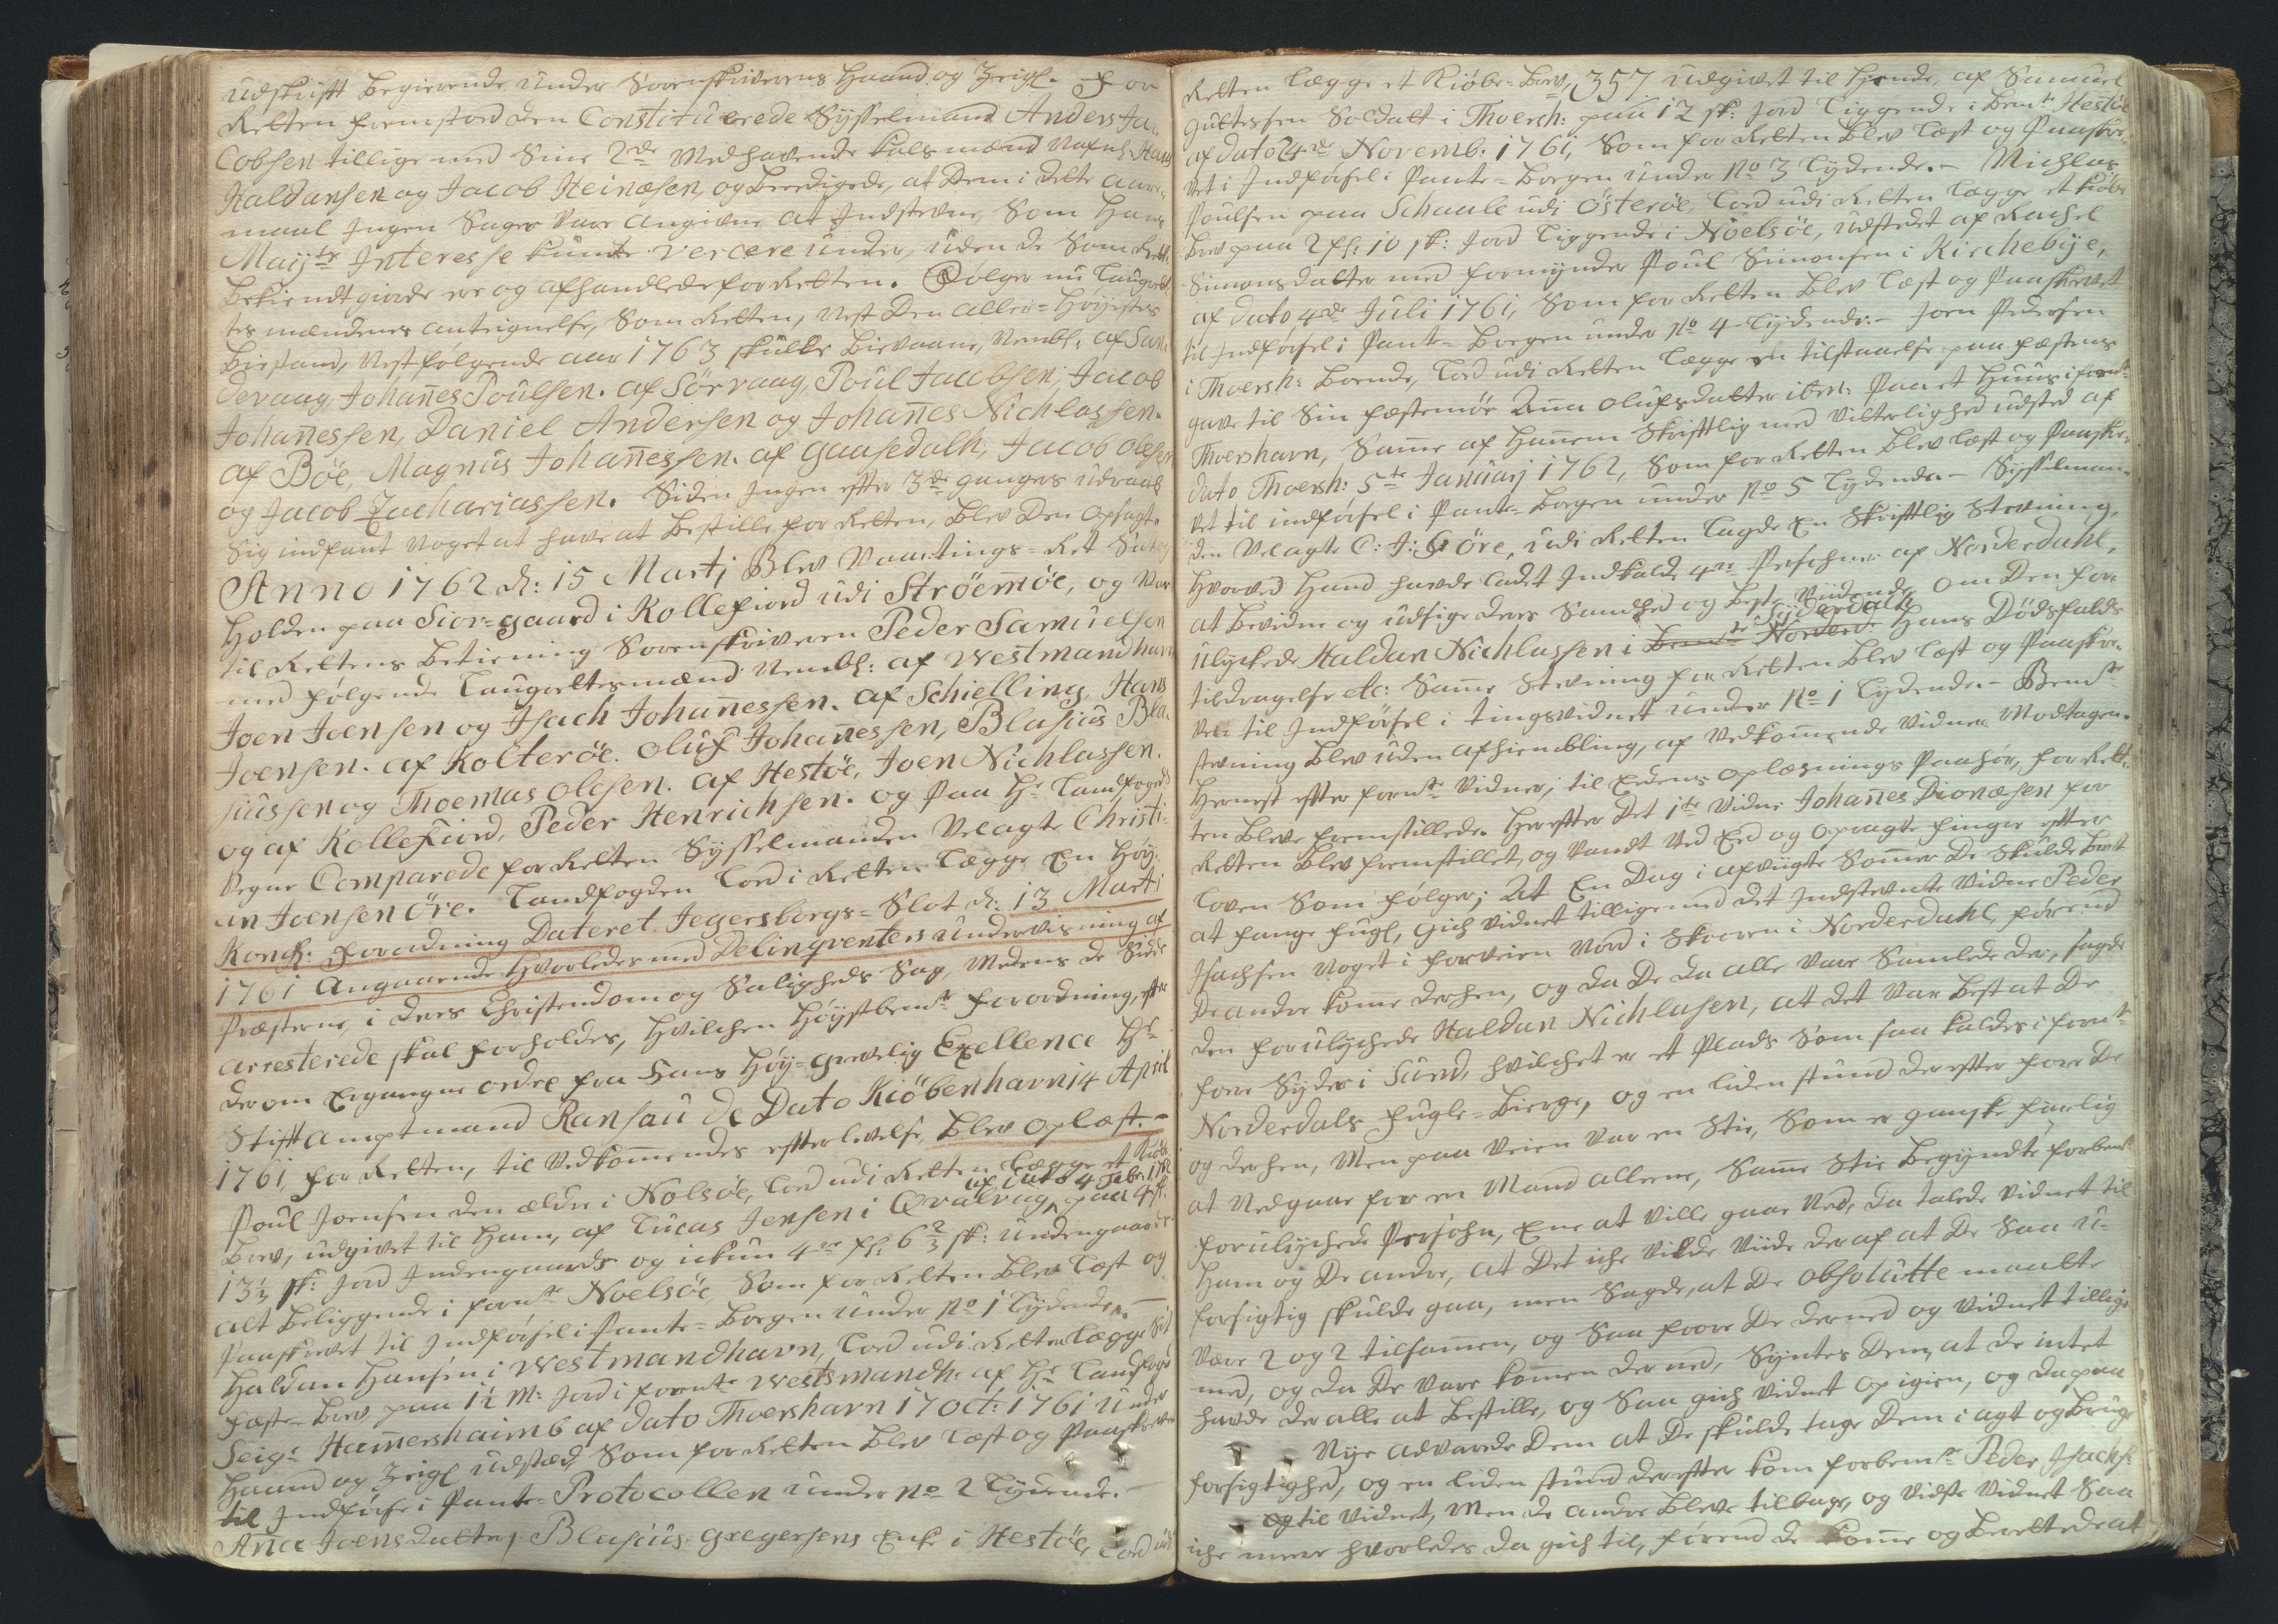 udskrift begierende under Sorenskriverens Haand og Zeigl. For
Retten fremstod den Constituerede Sysselmand Anders Ja¬
cobsen tillige med sine 2de medhavende kalsmænd Nafnl: Hans
Haldansen og Jacob Heinæsen, og beædigede, at dem i dette aars¬
maal Ingen Sager vare angivne at Indstevne, som Hans
Maijts Interesse kunde vercere under, uden de som Rett:
bekiendtgiorde ere og afhandlede for Retten. Følger nu Laugret¬
tes mændenes anteignelse, som Retten, nest den aller=Høyestes
bistand, nestfølgende aar 1763 skulle bievaane, Nembl: af San¬
devaag Johañes Poulsen. af Sörvaag, Poul Jacobsen, Jacob
Johañessen, Daniel Andersen og Johañes Nichlassen.
af Böe, Magnus Johañessen. af Gaasedalh, Jacob Olesen
og Jacob Zachariassen. Siden Ingen efter 3de ganges udraab
sig indfant noget at have at bestille for Retten, blev den opsagt.
Anno 1762 d: 15 Martj Blev Vaartings=Ret Sat og
Holden paa Sior=gaard i Kollefiord udi Ströemöe, og var
til Rettens betiening Sorenskriveren Peder Samuelsen
med følgende Laugrettesmænd Nembl: af Westmandhavn
Joen Joensen og Isach Johañessen. af Schielling, Hans
Joensen. af Kolteröe. Oluf Johañessen, Blasius Bla¬
siussen og Thoemas Olesen. af Hestöe, Joen Nichlassen.
og af Kollefiord, Peder Henrichsen. og paa Hr Landfogeds
vegne Comparede for Retten Sysselmanden Velagte Christi¬
an Joensen Öre. Landfogden lod i Retten lægge En Høy¬
Kongl: forordning Dateret Jegersborgs=Slot d: 13 Marti
1761 Angaaende Hvorledes med Delinqventers undervisning af
Præsterne, i deres Christendom og Saligheds Sag, medens de Sidde
arresterede skal forholdes, Hvilchen Høystbemte forordning, efter
derom Ergangne ordre fra Hans Høy=Grevelig Exellence Hr
Stiftamptmand Ransau de Dato Kiöbenhavn 14 April
1761 for Retten, til vedkom̄endes efterlevelse, blev oplæst. –
Poul Joensen den ældre i Nolsöe, lod udi Retten lægge et Kiøbe
af Dato 4 Febr: 1762
Brev, udgivet til Ham, af Lucas Jensen i Qvalvug, paa 4 fl.
13⅓ sk: Jord Indengaards og ickun 4re fl: 6⅔ sk: Undengaards
alt beliggende i fornte Noelsöe, som for Retten blev læst og
paaskrevet til Indførsel i Pante=Bogen under No 1 lydende. –
Haldan Hansen i Westmandhavn, lod udi Retten lægge Sit
fæste=Brev paa 1½ M: Jord i fornte Westmandh: af Hr Landfoged
Seigr Ham̄ershaimb af dato Thoershavn 17 Oct: 1761 under
Haand og Zeigl udstæd, som for Retten blev læst og paaskrevet
til Indførsel i Pante=Protocollen under No 2 lydende. –
Aña Joensdatter, Blasius Gregersens Enke i Hestöe, lod udi
Retten lægge et Kiøbe=Brev, 357 udgivet til Hende af Samuel
Guttesen Soldatt i Thoersh: paa 12 sk: Jord liggende i bemte Hestöe
af dato 24de Novemb: 1761, som for Retten blev læst og paaskre¬
vet i Indførsel: Pante=Bogen under No 3 lydende. – Nichlas
Poulsen paa Schaale udi Österöe, lod udi Retten lægge et Kiøbe
Brev paa 2 fl: 10 sk: Jord liggende i Nöelsöe, udstedet af Rachel
Simonsdatter med formynder Poul Simonsen i Kirchebÿe,
af dato 4de Juli 1761, som for Retten blev læst og paaskrevet
til Indførsel i Pante=Bogen under No 4 lydende. – Joen Pedersen
i Thoersh: boende, lod udi Retten lægge en tilstaaelse paa fæstens
gave til sin fæstemöe Aña Olufsdatter iben: paa et Huus i fornte
Thoershavn, Sam̄e af Hañem Skriftlig med vitterlighed udsted af
dato Thoersh: 5te Januarj 1762, som for Retten blev læst og paaskre¬
vet til indførsel i Pante=Bogen under No 5 lydende. – Sysselman¬
den Velagte C: J: Öre, udi Retten lagde En Skriftlig Stevning,
Hvorved Hand havde ladet Indkalde 4re Persohner af Norderdahl,
at bevidne og udsige deres Sandhed og beste vidende om den for¬
Syderdahl
ulyckede Haldan Nichlassen i bemte Norderd: Hans Dødsfalds
tildragelse etc: Sam̄e Stevning for Retten blev læst og paaskre¬
ven til Indførsel i Tingsvidnet under No 1 lydende. – Bemte
stevning blev uden afhiembling, af vedkom̄ende vidner modtagen.
Hernest efter fornte vidner, til Eedens oplæsnings paahør, for Ret¬
ten bleve fremstillede. Herefter det 1te vidne Johañes Dionæsen for
Retten blev fremstillet, og vandt ved Eed og opragte finger efter
loven som følger; At En Dag i afvigte Som̄er de skulde bort
at fange fugl, gich vidnet tillige med det Indstevnte vidne Peder
Isachsen noget i forveien nord i Skoren i Norderdahl, førend
de andre kom̄e derhen, og da de da alle vare Samlede der, sagde
den forulychede Haldan Nichlasen, at det var best at de
fore Syder i Sund, hvilchet er et Plads som saa kaldes i fornte
Norderdals fugle=Bierge, og en liden stund derefter fore de
og derhen, men paa veien var en Stie, som er ganske farlig
at nedgaae for en mand allene, Sam̄e Stie begyndte forbemte
forulychede Persohn, Ene at ville gaae ned, da talede vidnet til
Ham og de andre, at det iche vilde viide deraf at de Saa u¬
forsigtig skulde gaa, men Sagde, at de absolutte maatte
være 2 og 2 tilsam̄en, og saa foere de derned og vidnet tillige
med, og da de vare komen derned, Syntes dem, at de intet
havde der alle at bestille, og Saa gich vidnet op igien, og da paa
Nye advarede dem at de skulde tage dem i agt og bruge
forsigtighed, og en liden stund derefter kom forbemte Peder Isachs:
og til vidnet, men de andre bleve tilbage, og vidste vidnet Saa
iche meere hvorledes da gich til, førend de kom̄e og berettede at